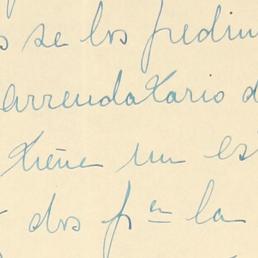 s se los pedim
arrendatario d
tiene un es
dos pª la